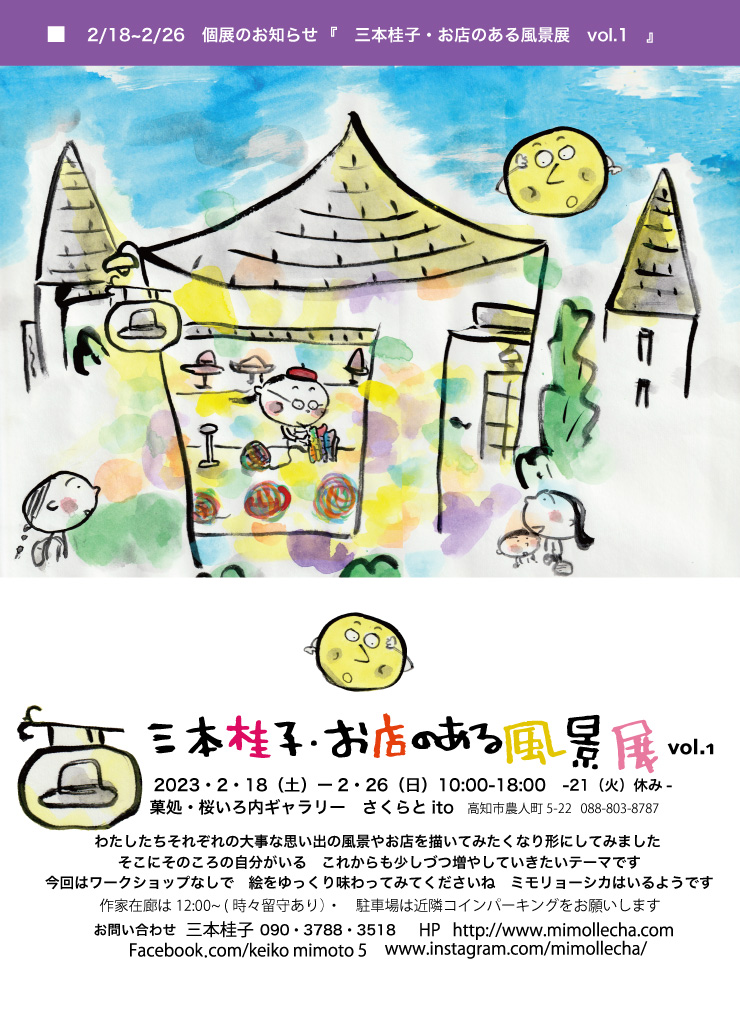 ■ 2/18~2/26 個展のお知らせ『 三本桂子・お店のある風景展 vol.1 』
三本桂子・お店のある風景展 vol.1
2023・2・18（土）ー2・26（日）10:00-18:00 -21（火）休み-
菓処・桜いろ内ギャラリー さくらと ito 高知市農人町 5-22 088-803-8787
わたしたちそれぞれの大事な思い出の風景やお店を描いてみたくなり形にしてみました
そこにそのころの自分がいる これからも少しづつ増やしていきたいテーマです
今回はワークショップなしで 絵をゆっくり味わってみてくださいね ミモリョーシカはいるようです
作家在廊は 12:00~ ( 時々留守あり）・ 駐車場は近隣コインパーキングをお願いします
お問い合わせ 三本桂子 090・3788・3518 HP http://www.mimollecha.com
Facebook.com/keiko mimoto 5 www.instagram.com/mimollecha/